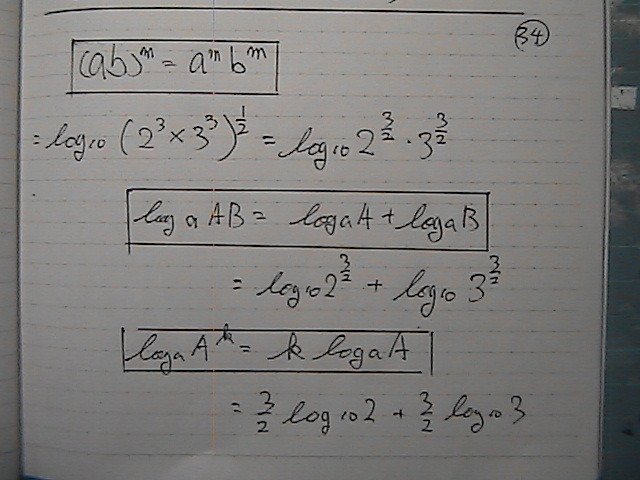 (34)
(ab)^m = a^m b^m
= log₁₀ (2³ × 3³)^½ = log₁₀ 2^{3/2} · 3^{3/2}
log a AB = log a A + log a B
= log₁₀ 2^{3/2} + log₁₀ 3^{3/2}
log a A^k = k log a A
= 3/2 log₁₀ 2 + 3/2 log₁₀ 3